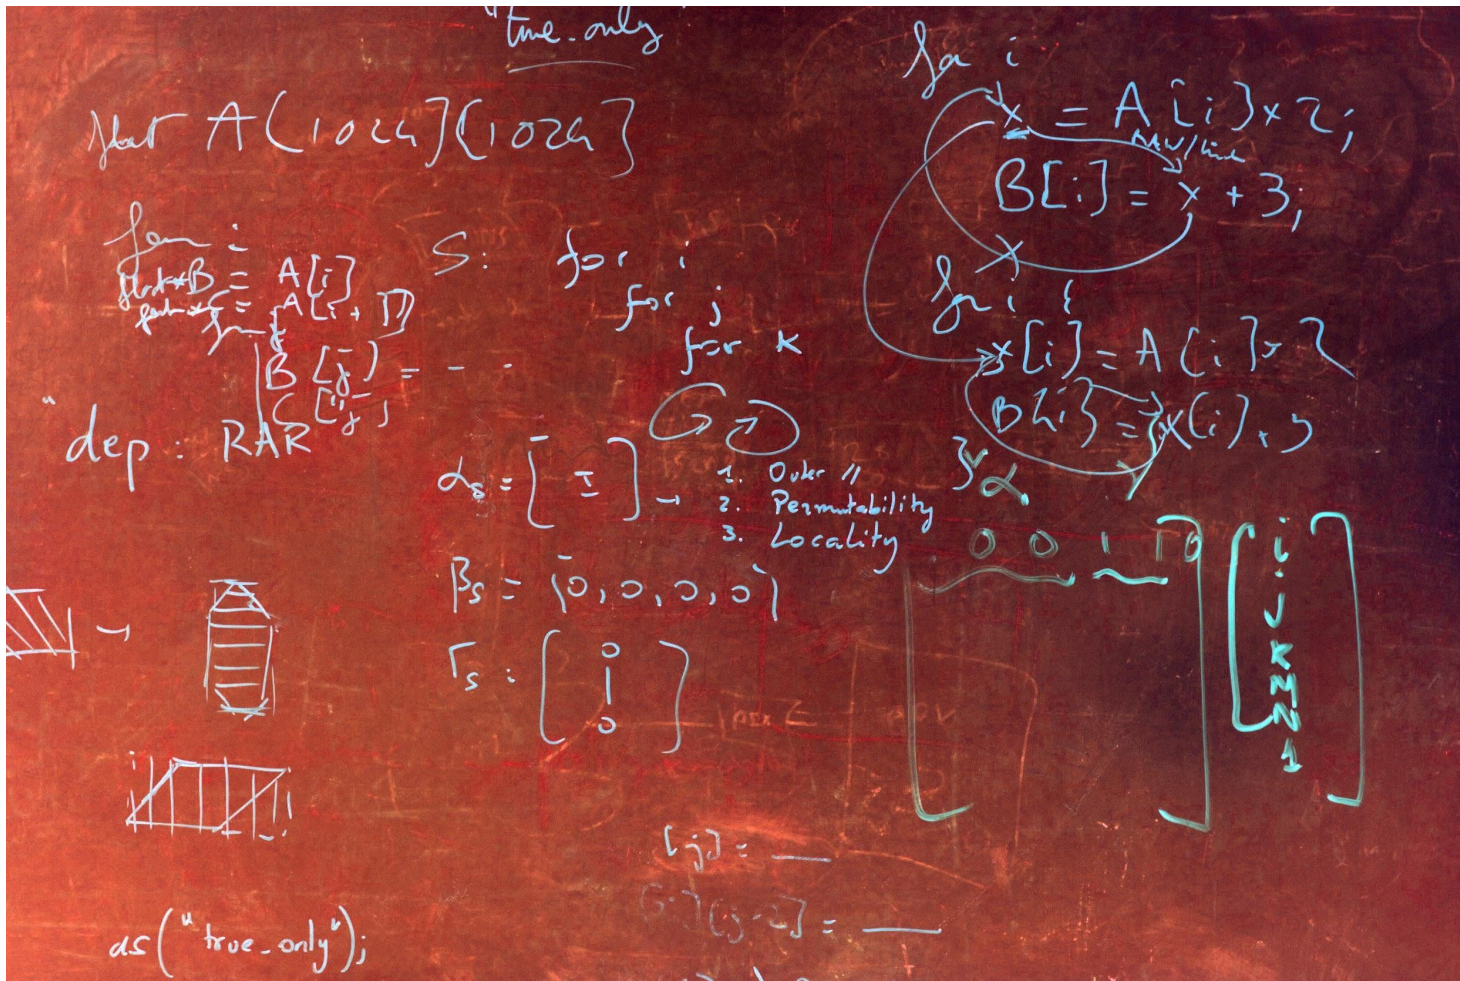 "true_only"
float A[1024][1024]
for i
float*B = A[i]
float*C = A[i+1]
for j
B[j] = - -
C[j]
"dep : RAR
S: for i
for j
for k
αs = [ I ] →
1. Outer //
2. Permutability
3. Locality
βs = [0, 0, 0, 0]
Γs : [0 1 0]
for i
x = A[i] x 2;
RAW/
B[i] = x + 3;
X
for i {
x[i] = A[i] x 2
B[i] = x[i] + 3
}
α γ
0 0 1 1 0
i
j
K
M
N
1
[j] = __
[i][j-2] = __
as("true_only");